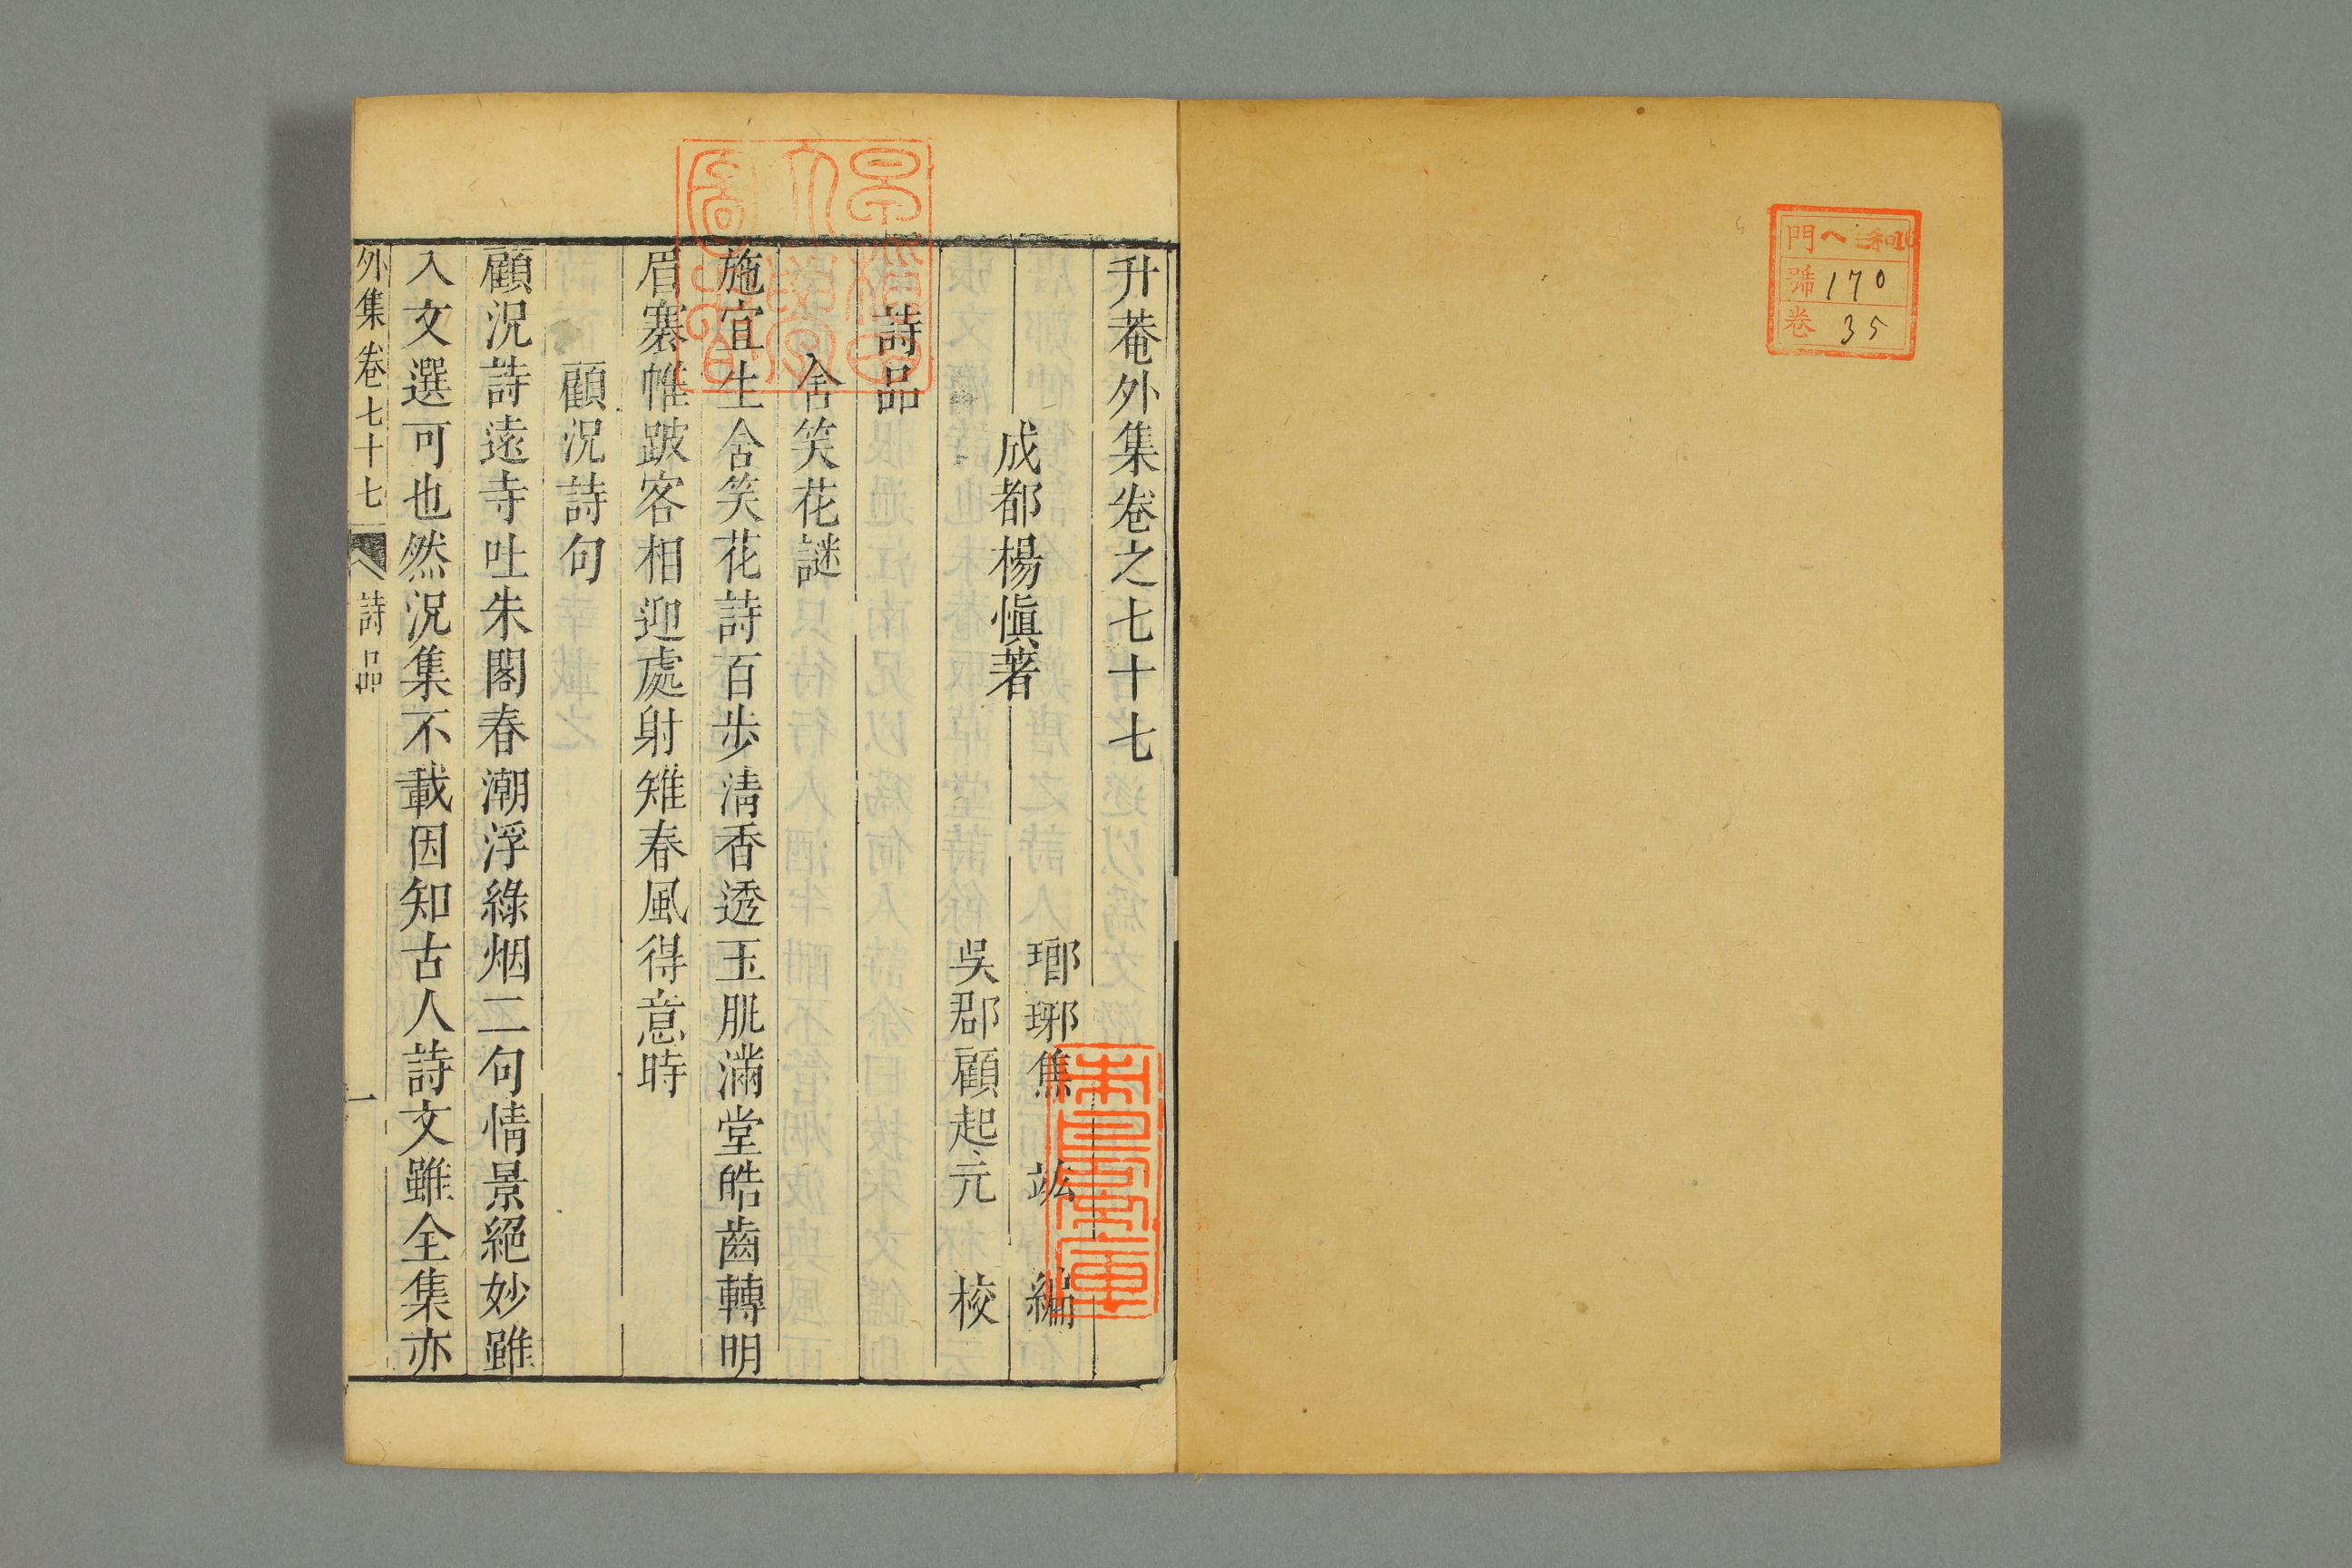 門 ヘ
號 170
卷 35
升菴外集卷之七十七
成都楊慎著
瑯琊焦 竑 編
吳郡顧起元 校
詩品
含笑花謎
施宜生含笑花詩百步清香透玉肌滿堂皓齒轉明
眉褰帷跛客相迎處射雉春風得意時
顧況詩句
顧況詩遠寺吐朱閣春潮浮綠烟二句情景絕妙雖
入文選可也然況集不載因知古人詩文雖全集亦
外集卷七十七 詩品 一